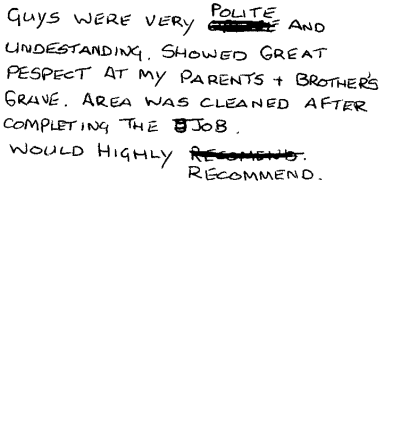 GUYS WERE VERY POLITE AND
UNDESTANDING. SHOWED GREAT
PESPECT AT MY PARENTS + BROTHER'S
GRAVE. AREA WAS CLEANED AFTER
COMPLETING THE JOB.
WOULD HIGHLY
RECOMMEND.